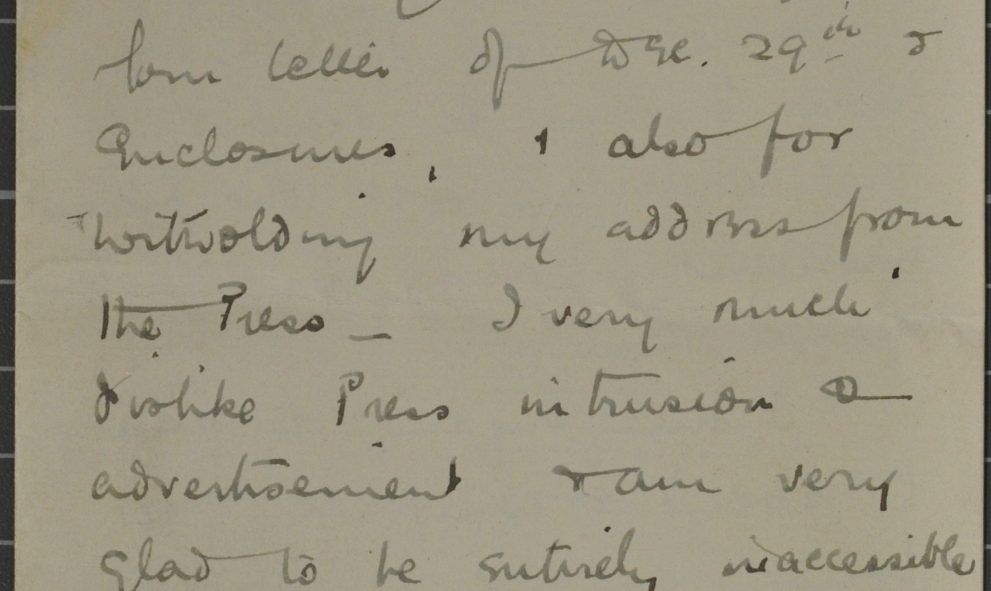 your letter of Dec. 29th &
Enclosures, & also for
witholding my address from
the Press — I very much
dislike Press intrusion &
advertisement & am very
glad to be entirely inaccessible